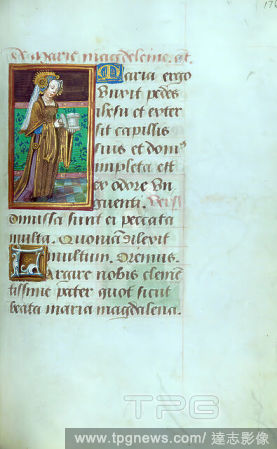 176
De marie magdeleine. añ.
Maria ergo
vnxit pedes
iesu et exter
sit capillis
suis et domꝰ
impleta est
ex odore vn
guenti. Versꝰ
Dimissa sunt ei peccata
multa. Quoniã dilexit
multum. Oremus.
Largire nobis cleme
tissime pater quot sicut
beata maria magdalena.
TPG
www.tpgnews.com/達志影像